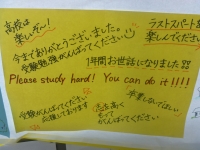 高校は
楽しいぞー!
ラストスパートを
楽しんでください
今までありがとうございました。
受験勉強がんばってください
1年間お世話になりました
Please study hard! You can do it!!!!
受験がんばってください
応援しております
がんばってください